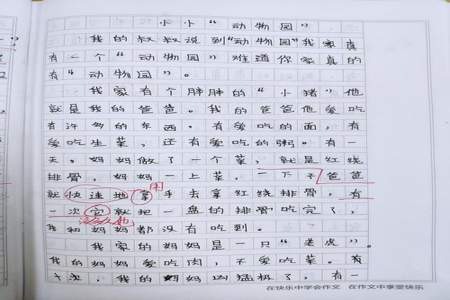 小小“动物园”
我的叔叔说到“动物园”我家真
有一个“动物园”难道你家真的
有“动物园”。
我家有个胖胖的“小猪”他
就是我的爸爸。我的爸爸他爱吃
有许多的东西。有爱吃的面，有
爱吃生菜，还有爱吃的粥。有一
天。妈妈做了一个菜，就是红烧
排骨，妈妈一上菜，一下子爸爸
就快速地拿手去拿红烧排骨。有
用
一次它就把一盘的排骨吃完了，
我和妈妈都没有吃到。
我家的妈妈是一只“老虎”
我的妈妈爱吃肉，不爱吃菜。有
一次，我的妈妈凶猛极了，有一
在快乐中学会作文 在作文中享受快乐